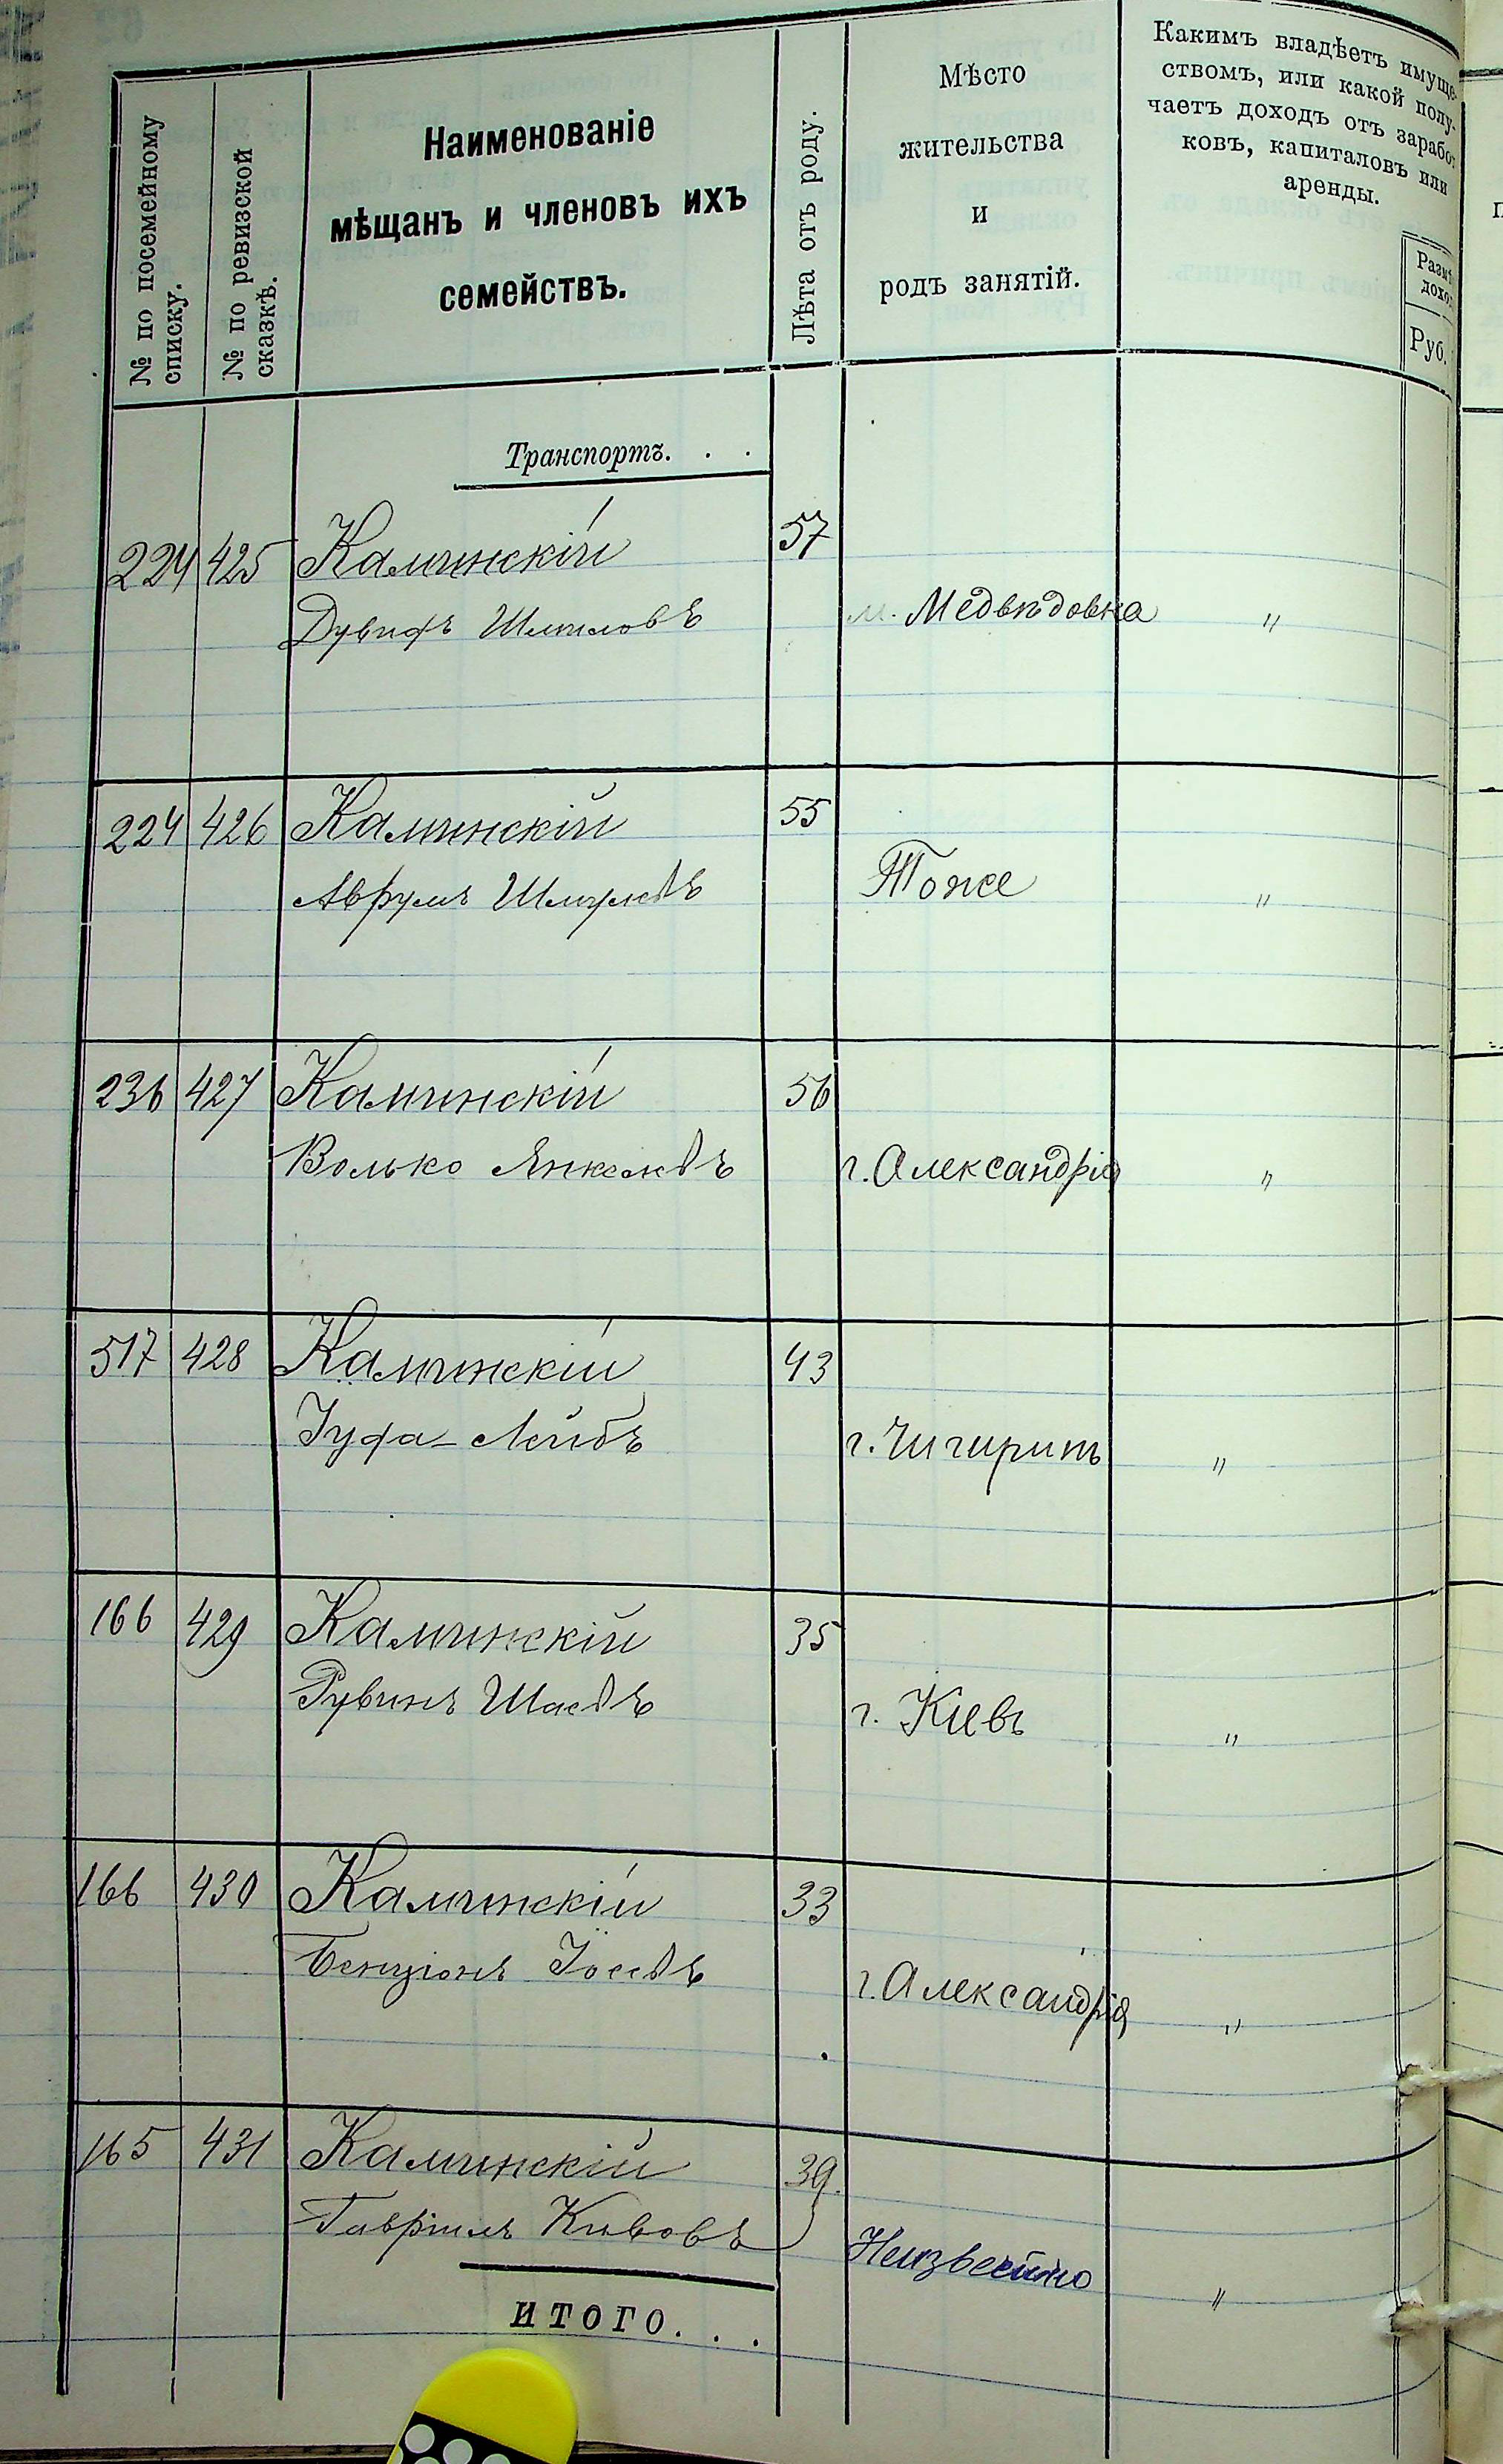 № по посемейному
списку.
№ по ревизской
сказкѣ.
Наименованіе
мѣщанъ и членовъ ихъ
семействъ.
Лѣта отъ роду.
Мѣсто
жительства
и
родъ занятій.
Какимъ владѣетъ имуще-
ствомъ, или какой полу-
чаетъ доходъ отъ заработ
ковъ, капиталовъ или
аренды.
Размѣ
дохо
Руб.
Транспортъ. . .
224 425 Каминскій 57
м. Медвѣдовка "
224 426 Каминскій 55
Аврумъ Шмулевъ Тоже "
236 427 Каминскій 56
Волько Янкелевъ г. Александрія "
517 428 Каминскій 43
Іуда-Лейбъ г. Чигиринъ "
166 429 Каминскій 35
Рувинъ г. Кіевъ "
166 430 Каминскій 33
Бенціонъ Іосевъ г. Александрія "
165 431 Каминскій 39.
Гавріилъ Кивовъ Неизвестно "
ИТОГО. . .